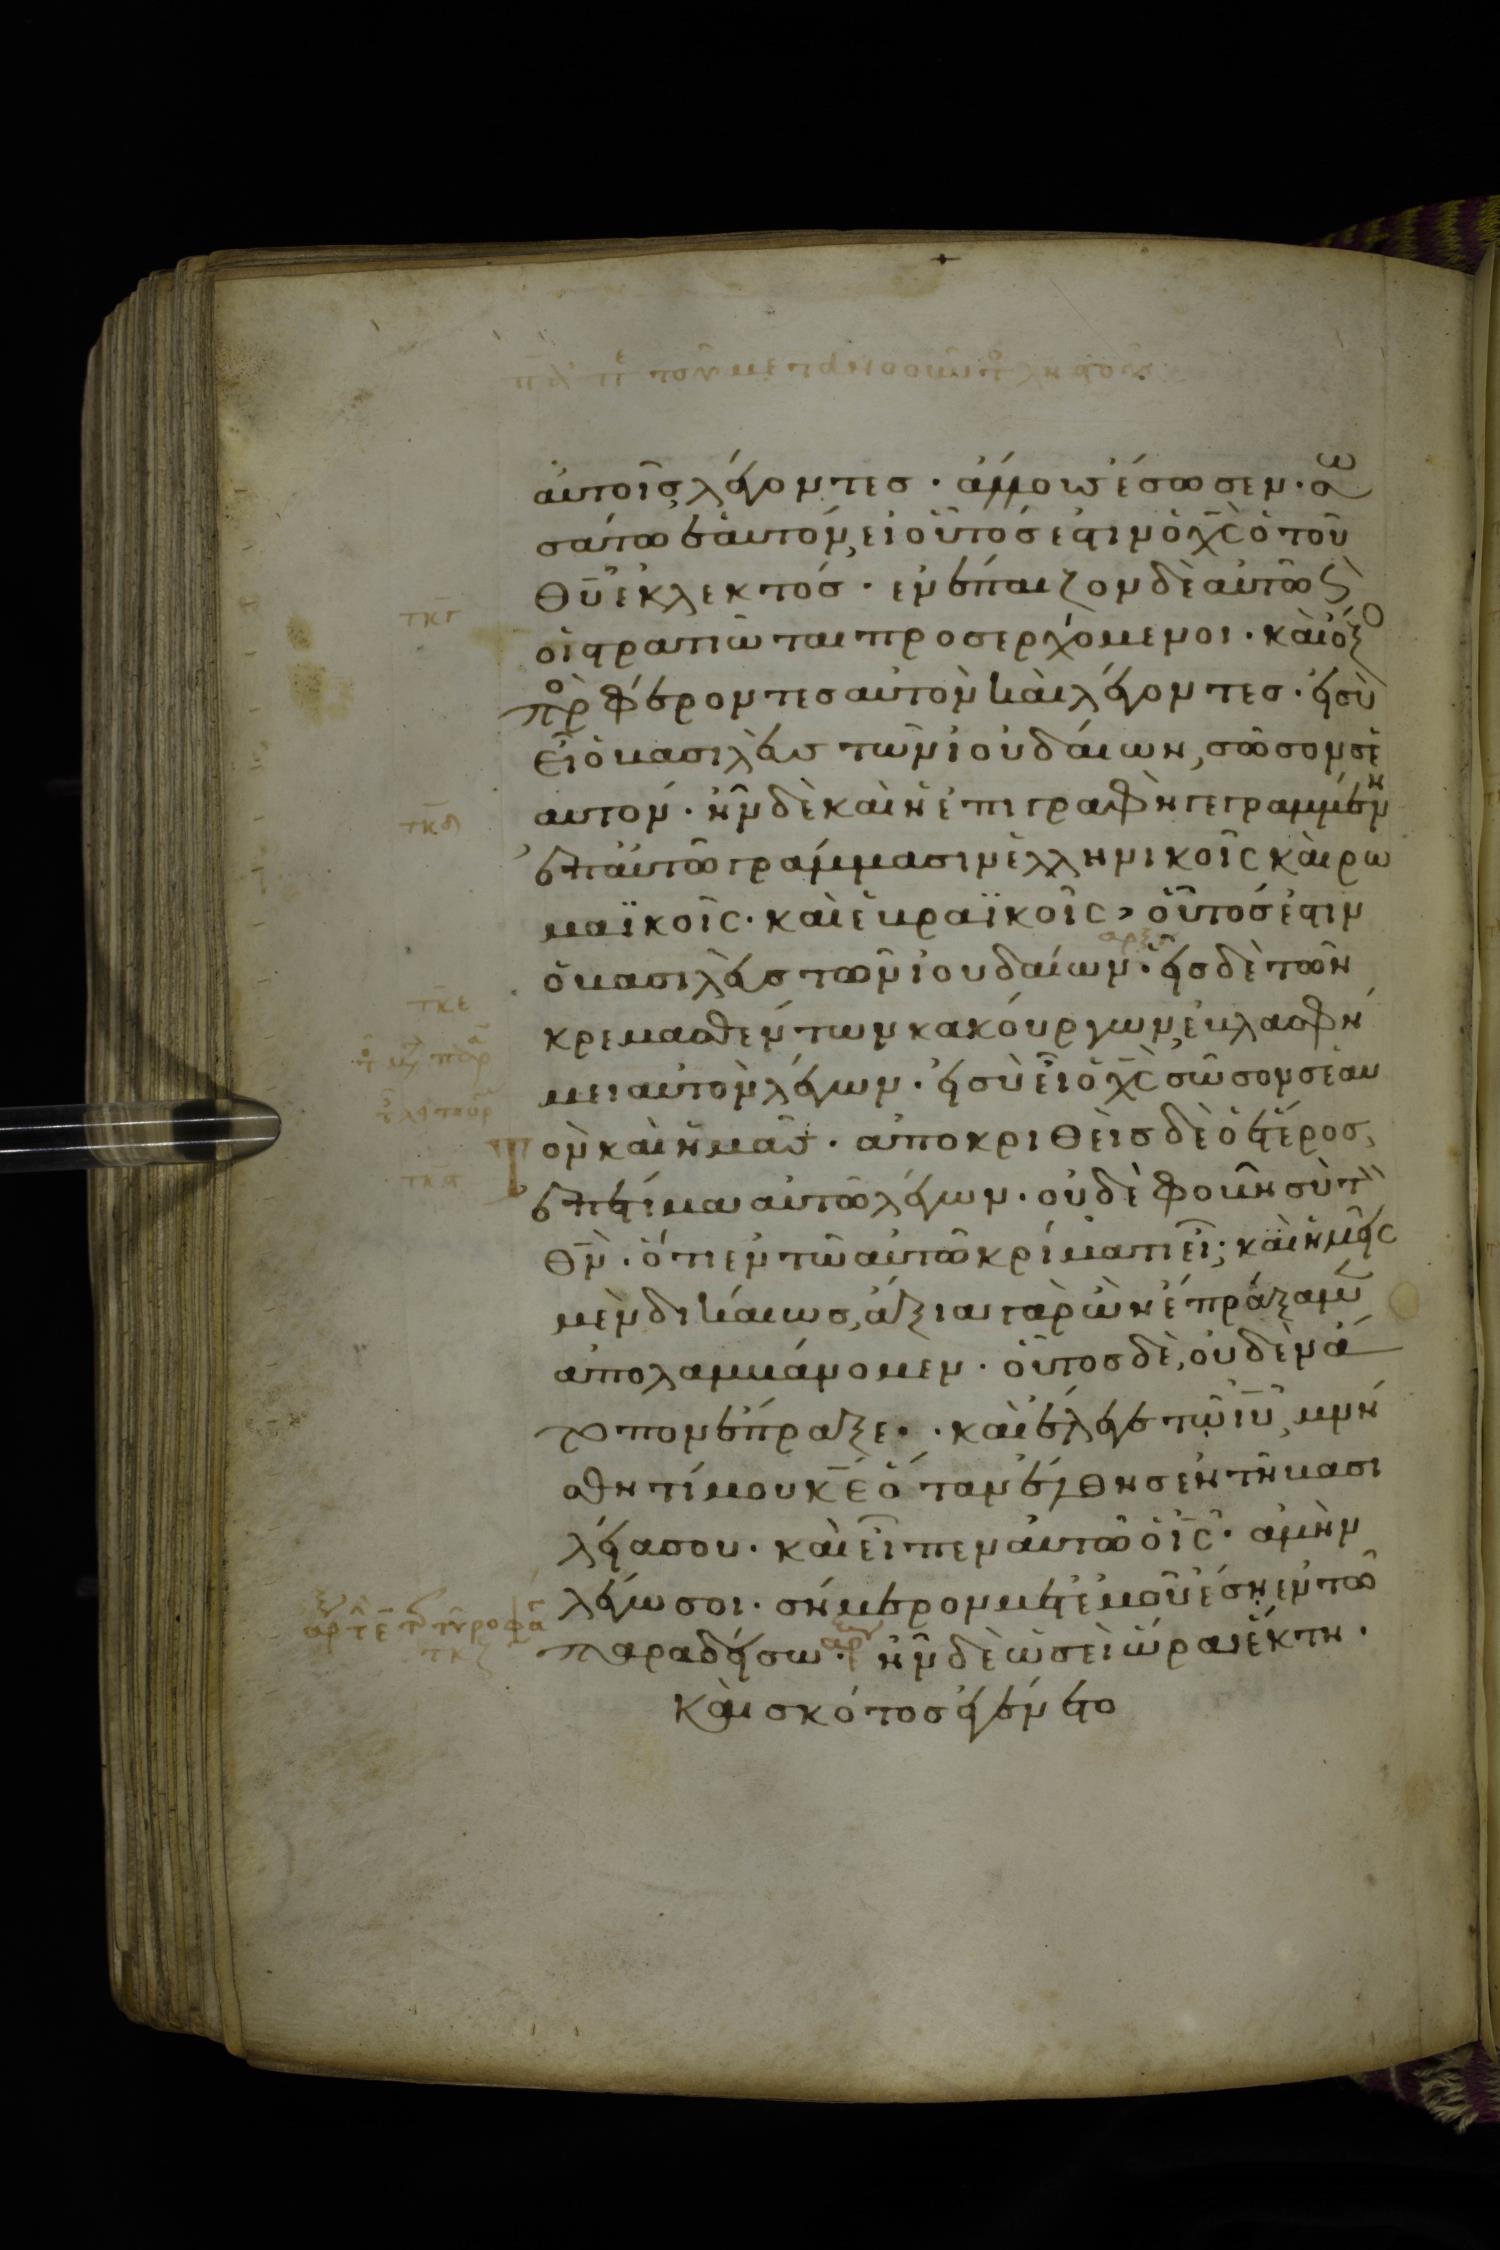 αὐτοῖς λέγοντες · ἄλλους ἔσωσεν · σω
σάτω ἑαυτόν, εἰ οὗτός ἐστιν ὁ χ̅ς̅ ὁ τοῦ
θ̅υ̅ ἐκλεκτός · ἐνέπαιζον δὲ αὐτῷ
τκγ
οἱ στρατιῶται προσερχόμενοι · καὶ ὄξο
προσφέροντες αὐτὸν καὶ λέγοντες · εἰ σὺ
εἶ ὁ βασιλεὺς τῶν ἰουδαίων, σῶσον σε
αυτόν · ἦν δὲ καὶ ἡ ἐπιγραφὴ γεγραμμένη
τκδ
ἐπ αὐτῶ γράμμασιν ἑλληνικοῖς καὶ ρω
μαϊκοῖς · καὶ ἑβραϊκοῖς, οὗτός ἐστιν
ὁ βασιλεὺς τῶν ἰουδαίων · εἷς δὲ τῶν
τκε
κρεμασθέντων κακούργων, ἐβλασφή
μει αὐτὸν λέγων · εἰ σὺ εἶ ὁ χ̅ς̅ σῶσον σεαυ
ὸν καὶ ἡμᾶς · ἀποκριθεὶς δὲ ὁ ἕτερος,
τκϛ
ἐπετίμα αὐτῶ λέγων · οὐδὲ φοβῆ σὺ τὸν
θ̅ν̅ · ὅτι ἐν τῶ αὐτῶ κρίματι εἶ; καὶ ἡμεῖς
μὲν δικαίως, ἄξια γὰρ ὧν ἐπράξαμεν
ἀπολαμβάνομεν · οὗτος δὲ, οὐδὲν ἄ
τοπον ἔπραξε · καὶ ἔλεγε τῶ ι̅υ̅, μνή
σθητί μου κ̅ε̅ ὅταν ἔλθης ἐν τῆ βασι
λεία σου · καὶ εἶπεν αὐτῶ ὁ ι̅ς̅ · ἀμὴν
λέγω σοι · σήμερον μετ ἐμοῦ ἔση ἐν τῶ
παραδείσω · ἦν δὲ ὡσεὶ ὥρα ἕκτη ·
τκζ
καὶ σκότος ἐγένετο